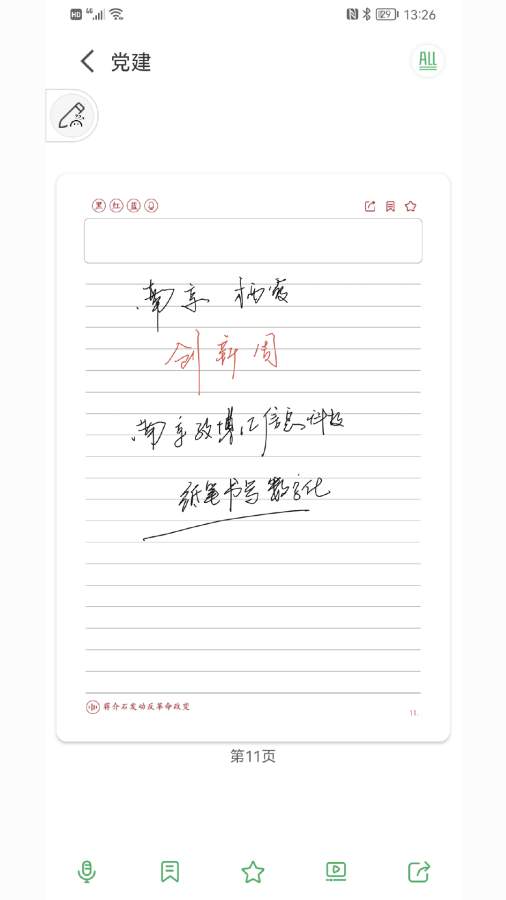 HD 4G 29 13:26
党建
ALL
黑 红 蓝
南京 栖霞
创新周
南京政博汇信息科技
纸笔书写数字化
蒋介石发动反革命政变
11
第11页